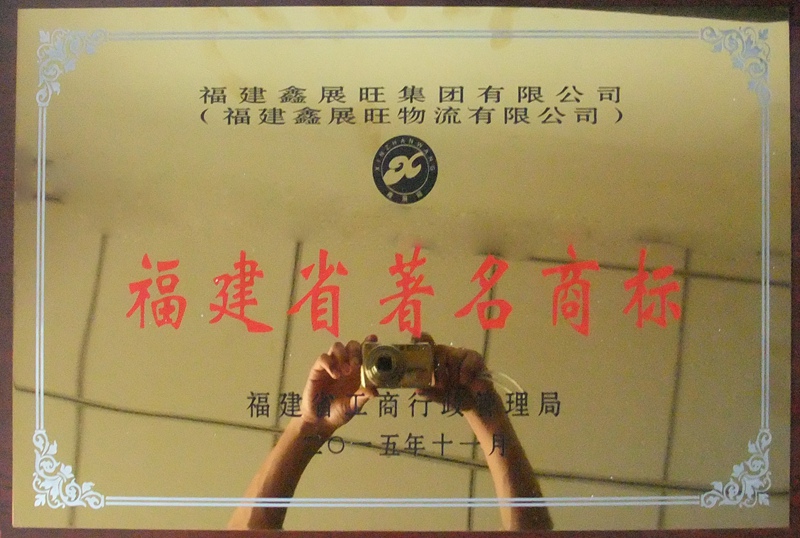 福建鑫展旺集团有限公司
（福建鑫展旺物流有限公司）
XINZHANWANG
鑫展旺
福建省著名商标
福建省工商行政管理局
二〇一五年十一月